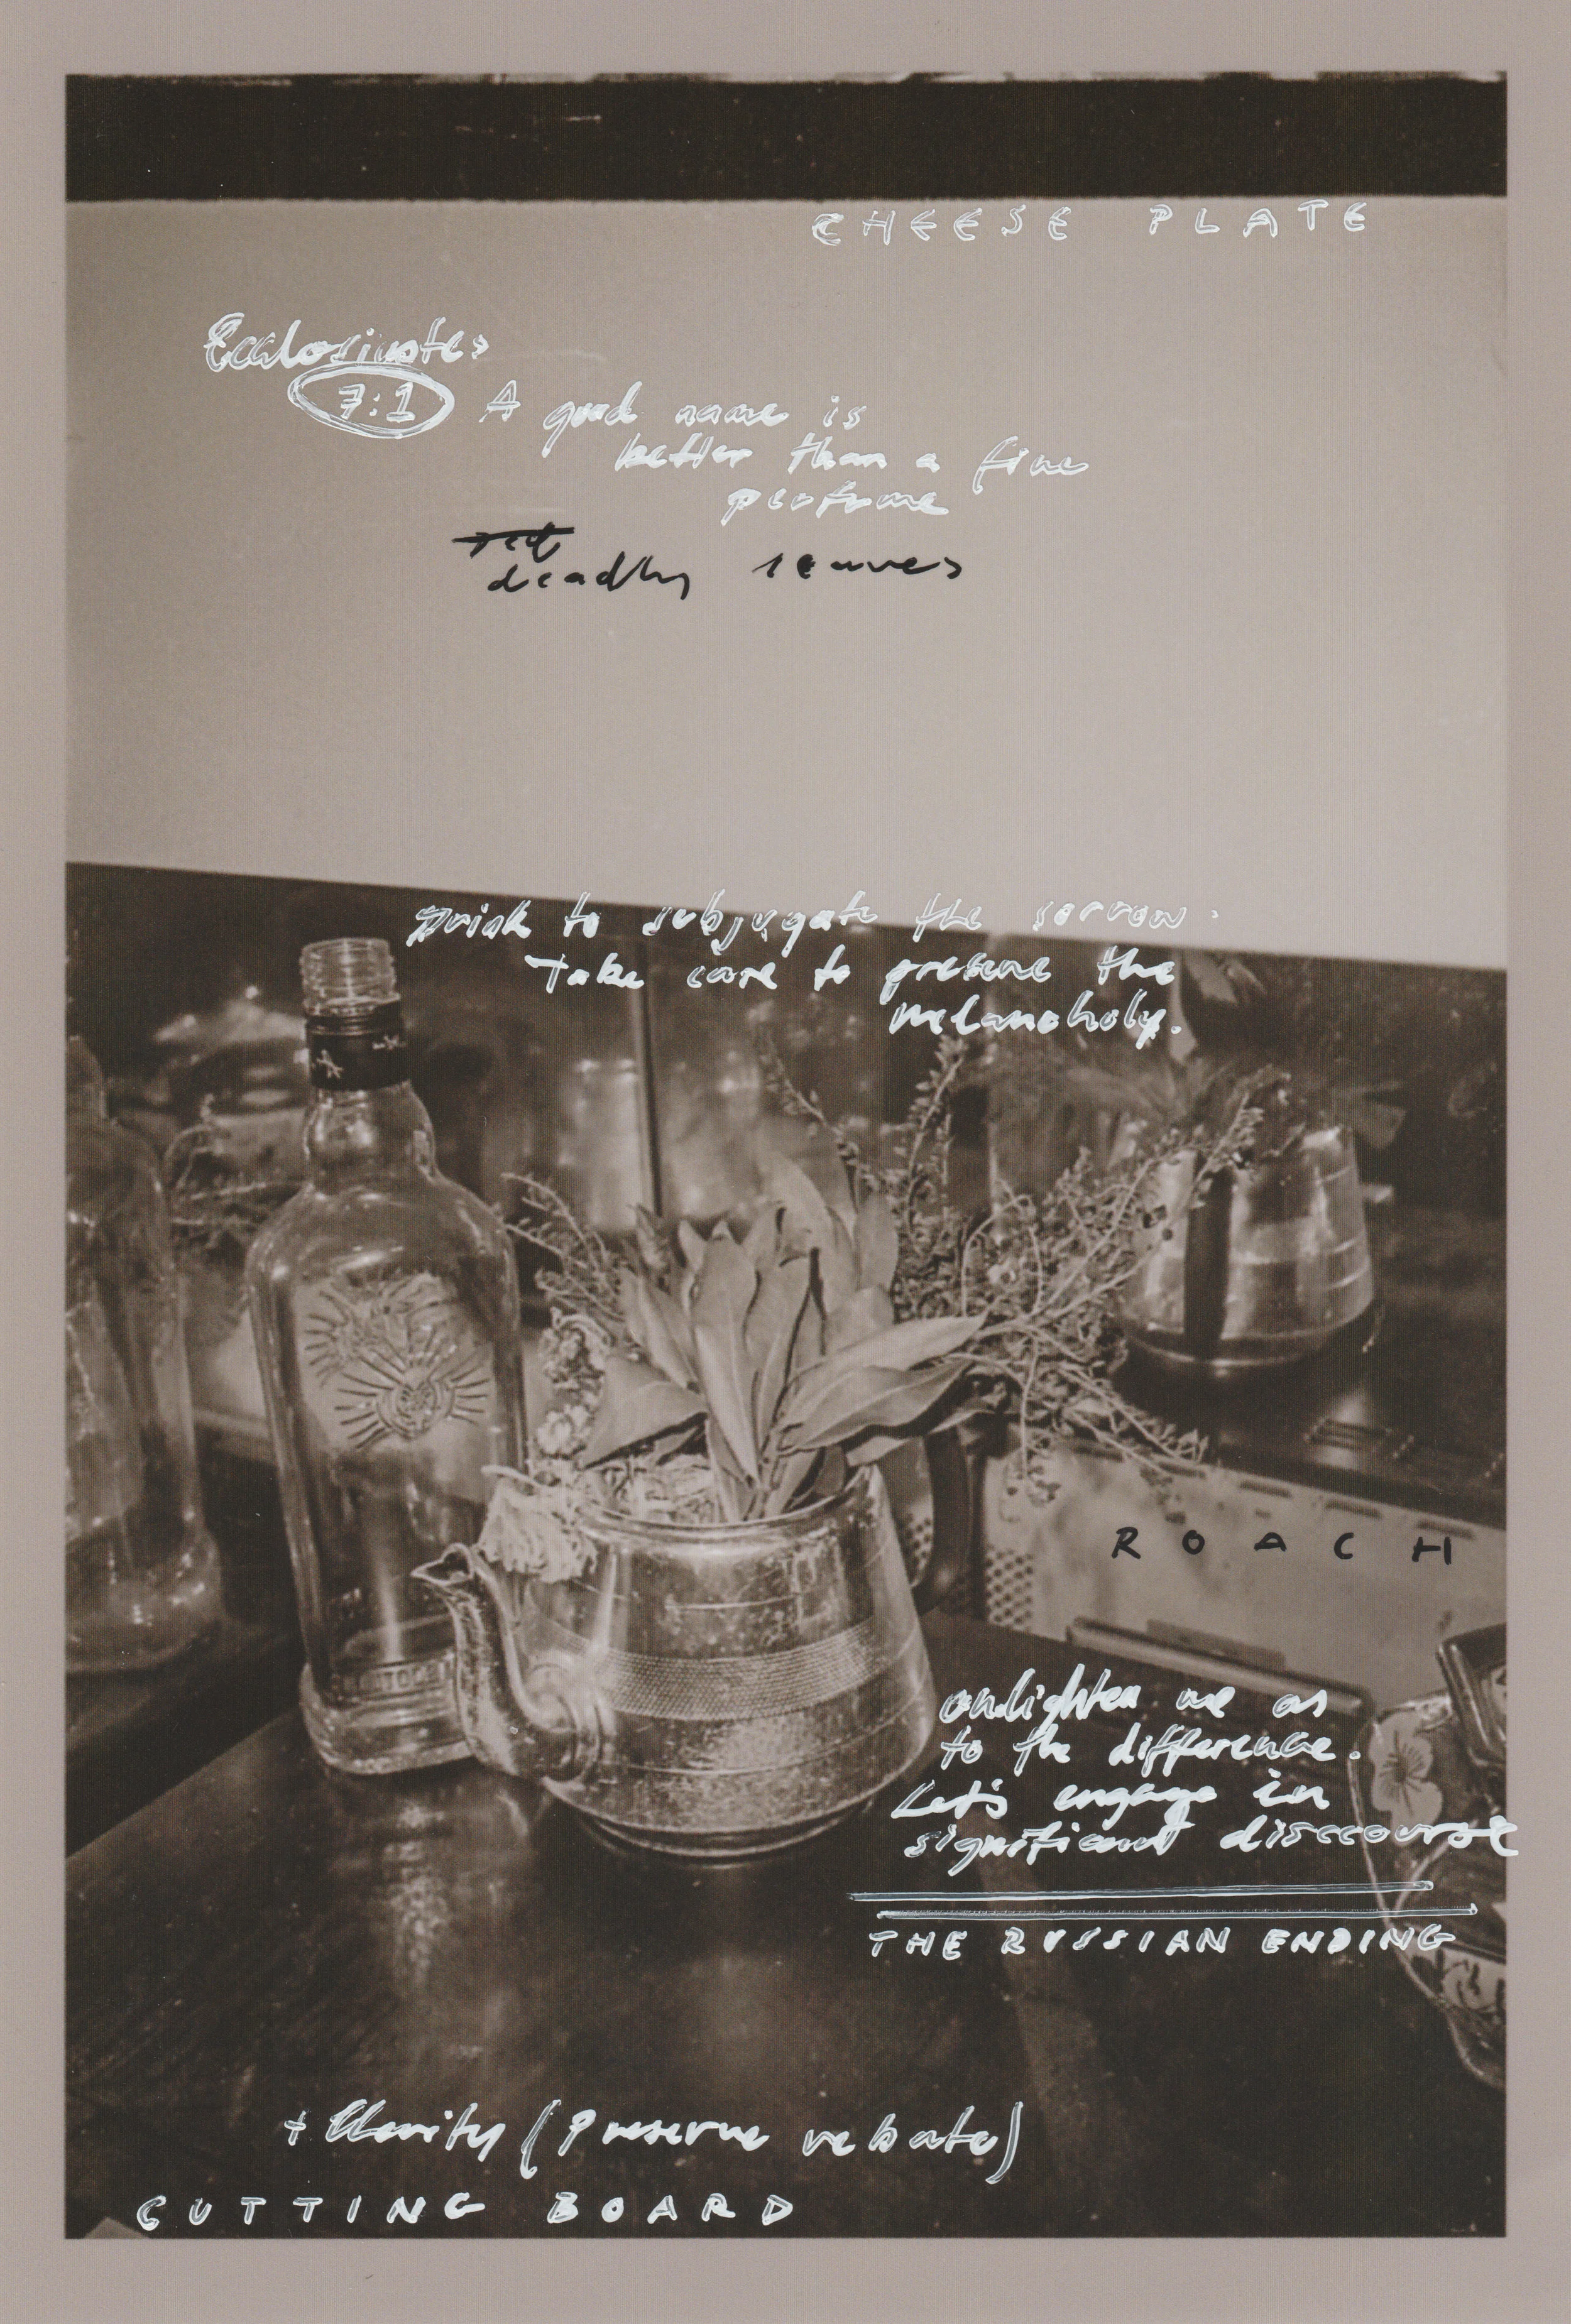 CHEESE PLATE
Ecclosiastes
7:1 A good name is
better than a fine
perfume
deadly leaves
Drink to subjugate the sorrow.
Take care to preserve the
melancholy.
ROACH
enlighten me as
to the difference.
Let's engage in
significant disccourse
THE RUSSIAN ENDING
+ Clarity (Preserve rebate)
CUTTING BOARD